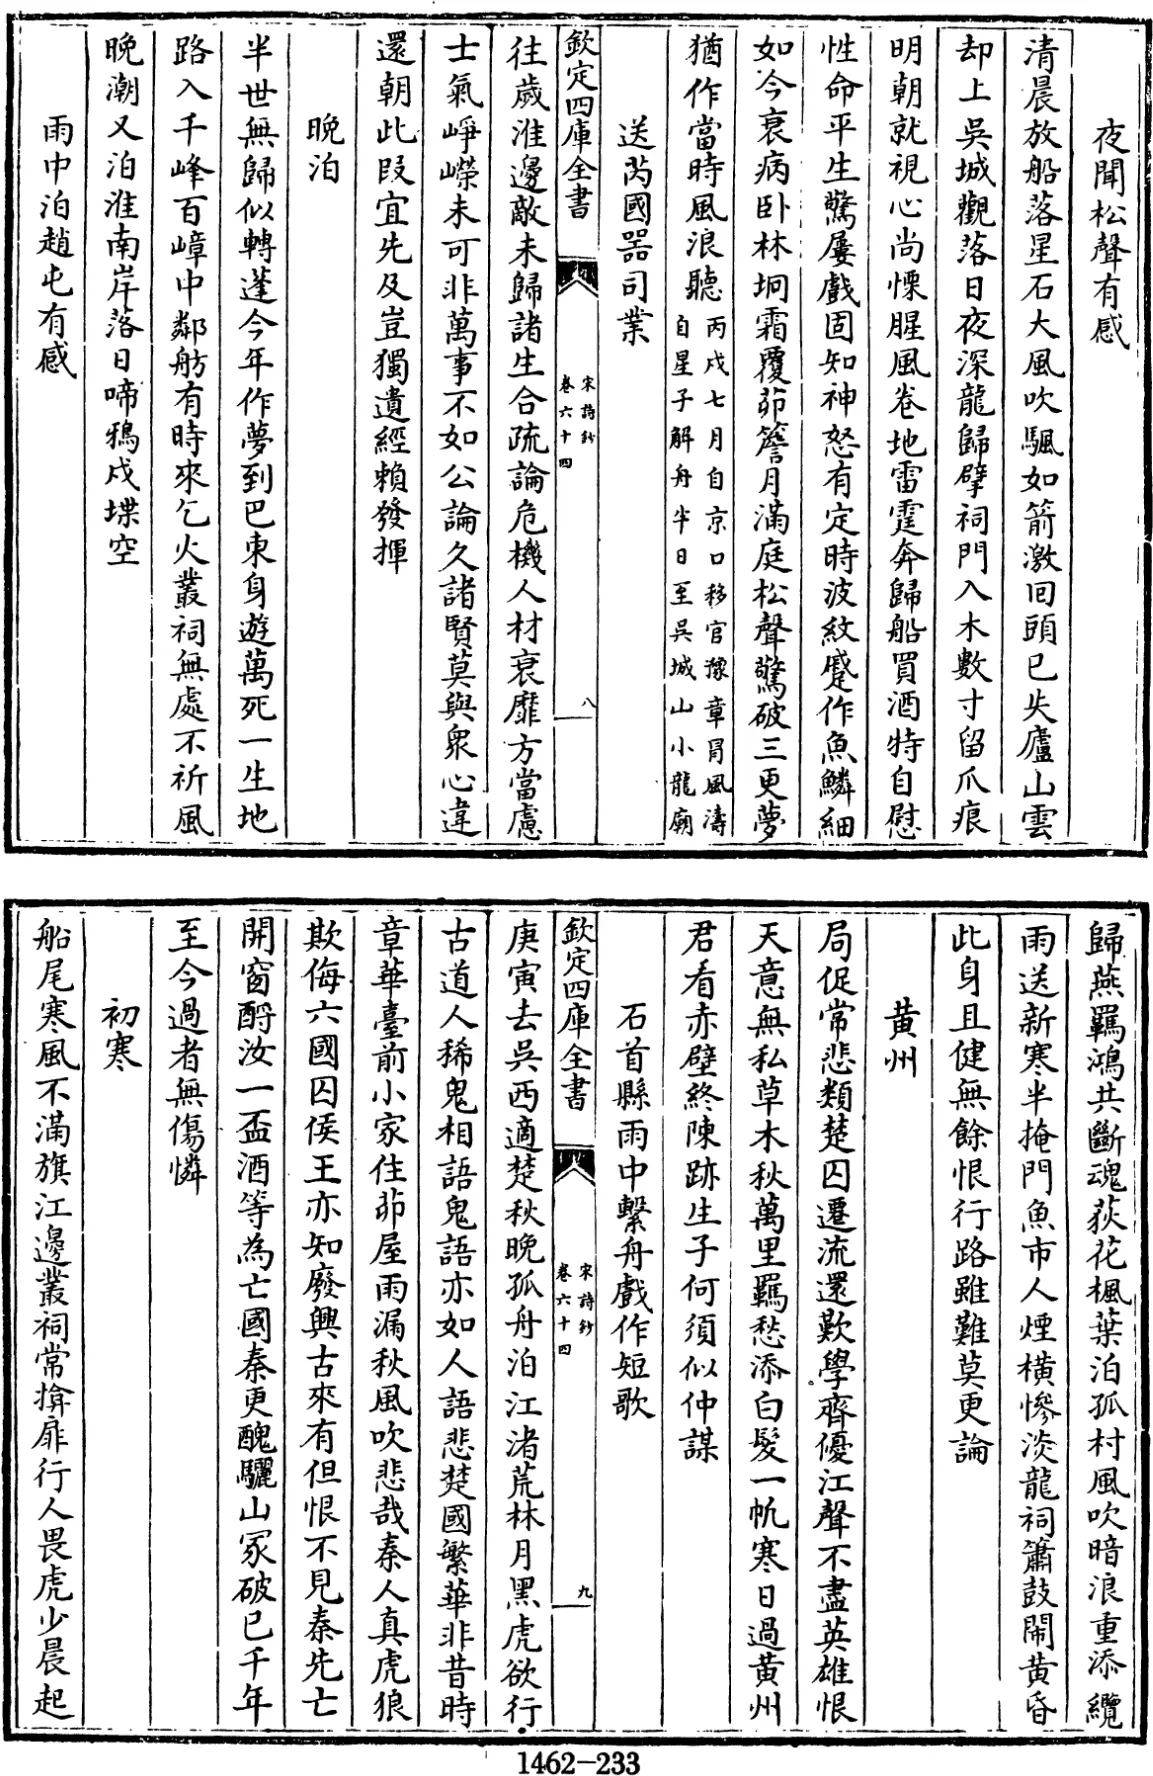 夜聞松聲有感
清晨放船落星石大風吹颿如箭激回頭已失廬山雲
却上吳城觀落日夜深龍歸擘祠門入木數寸留爪痕
明朝就視心尚慄腥風卷地雷霆奔歸船買酒特自慰
性命平生驚屢戲固知神怒有定時波紋蹙作魚鱗細
如今衰病卧林坰霜覆茆簷月滿庭松聲驚破三更夢
猶作當時風浪聽
丙戌七月自京口移官豫章冐風濤
自星子解舟半日至吳城山小龍廟
送芮國噐司業
欽定四庫全書
宋詩鈔
卷六十四
八
往歲淮邊敵未歸諸生合疏論危機人材衰靡方當慮
士氣崢嶸未可非萬事不如公論久諸賢莫與衆心違
還朝此叚宜先及豈獨遺經賴發揮
晚泊
半世無歸似轉蓬今年作夢到巴東身遊萬死一生地
路入千峰百嶂中鄰舫有時來乞火叢祠無處不祈風
晚潮又泊淮南岸落日啼鴉戍堞空
雨中泊趙屯有感
歸燕羈鴻共斷魂荻花楓葉泊孤村風吹暗浪重添纜
雨送新寒半掩門魚市人煙橫慘淡龍祠簫鼓鬧黄昏
此身且健無餘恨行路雖難莫更論
黄州
局促常悲類楚囚遷流還歎學齊優江聲不盡英雄恨
天意無私草木秋萬里羈愁添白髮一帆寒日過黄州
君看赤壁終陳跡生子何須似仲謀
石首縣雨中繫舟戲作短歌
欽定四庫全書
宋詩鈔
卷六十四
九
庚寅去吳西適楚秋晚孤舟泊江渚荒林月黑虎欲行
古道人稀鬼相語鬼語亦如人語悲楚國繁華非昔時
章華臺前小家住茆屋雨漏秋風吹悲哉秦人真虎狼
欺侮六國囚侯王亦知廢興古來有但恨不見秦先亡
開窗酹汝一盃酒等為亡國秦更醜驪山冢破已千年
至今過者無傷憐
初寒
船尾寒風不滿旗江邊叢祠常揜扉行人畏虎少晨起
1462-233